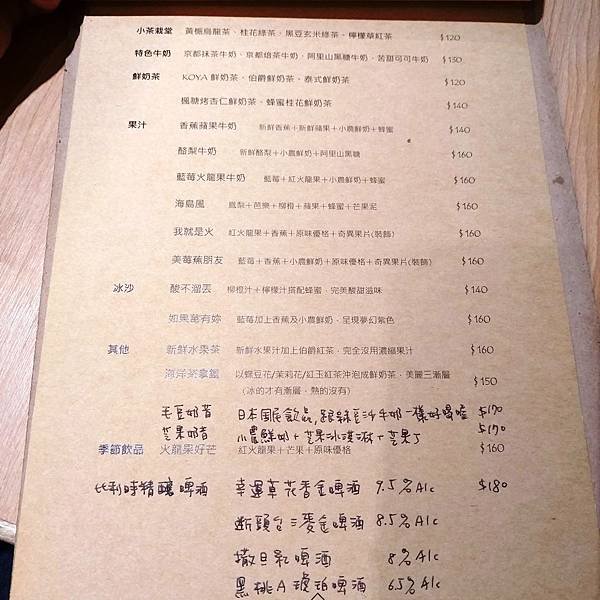 小茶栽堂 黃梔烏龍茶、桂花綠茶、黑豆玄米綠茶、檸檬草紅茶 $120
特色牛奶 京都抹茶牛奶、京都焙茶牛奶、阿里山黑糖牛奶、苦甜可可牛奶 $130
鮮奶茶 KOYA 鮮奶茶、伯爵鮮奶茶、泰式鮮奶茶 $120
楓糖烤杏仁鮮奶茶、蜂蜜桂花鮮奶茶 $140
果汁 香蕉蘋果牛奶 新鮮香蕉＋新鮮蘋果＋小農鮮奶＋蜂蜜 $140
酪梨牛奶 新鮮酪梨＋小農鮮奶＋阿里山黑糖 $160
藍莓火龍果牛奶 藍莓＋紅火龍果＋小農鮮奶＋蜂蜜 $160
海島風 鳳梨＋芭樂＋柳橙＋蘋果＋蜂蜜＋芒果泥 $160
我就是火 紅火龍果＋香蕉＋原味優格＋奇異果片(裝飾) $160
美莓蕉朋友 藍莓＋香蕉＋小農鮮奶＋原味優格＋奇異果片(裝飾) $160
冰沙 酸不溜丟 柳橙汁＋檸檬汁搭配蜂蜜，完美酸甜滋味 $140
如果莓有妳 藍莓加上香蕉及小農鮮奶，呈現夢幻紫色 $160
其他 新鮮水果茶 新鮮水果汁加上伯爵紅茶，完全沒用濃縮果汁 $160
海洋茶拿鐵 以蝶豆花/茉莉花/紅玉紅茶沖泡成鮮奶茶，美麗三漸層 $150
(冰的才有漸層，熱的沒有)
毛豆奶昔 日本國民飲品,跟綠豆沙牛奶一樣好喝喔 $170
芒果奶昔 小農鮮奶+芒果冰淇淋+芒果丁 $170
季節飲品 火龍果好芒 紅火龍果＋芒果＋原味優格 $160
比利時精釀啤酒 幸運草花香金啤酒 9.5% Alc $180
斷頭台三麥金啤酒 8.5% Alc
撒旦紅啤酒 8% Alc
黑桃A琥珀啤酒 6.5% Alc